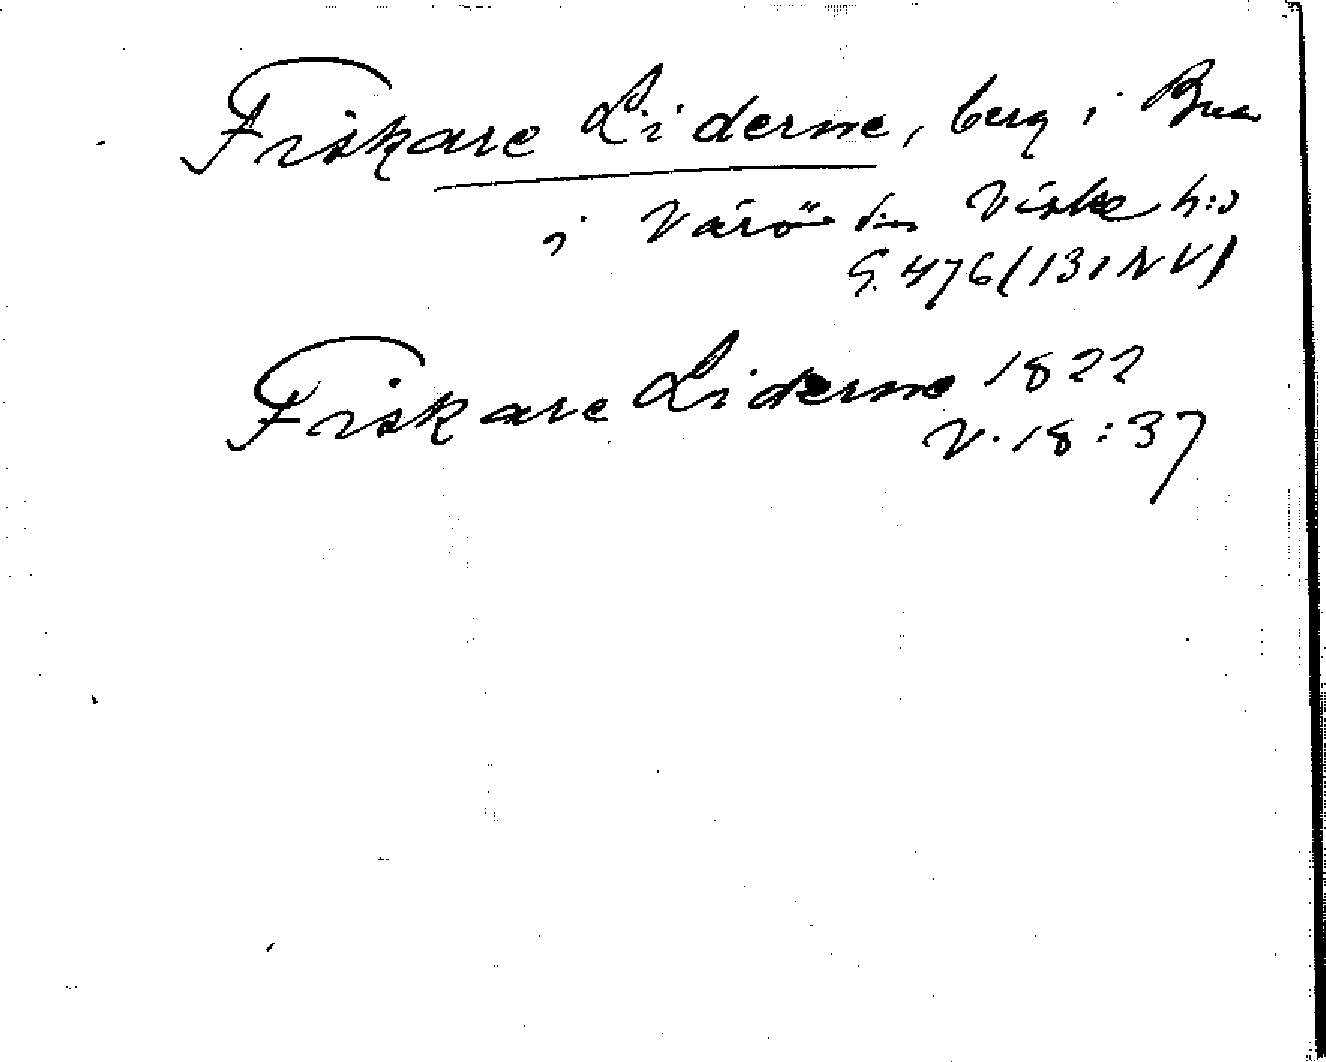 Fiskare Liderne, berg i Bua
i Värö sn Viske h:d
G. 476 (131 NV)
Fiskare Liderne 1822
V. 18:37